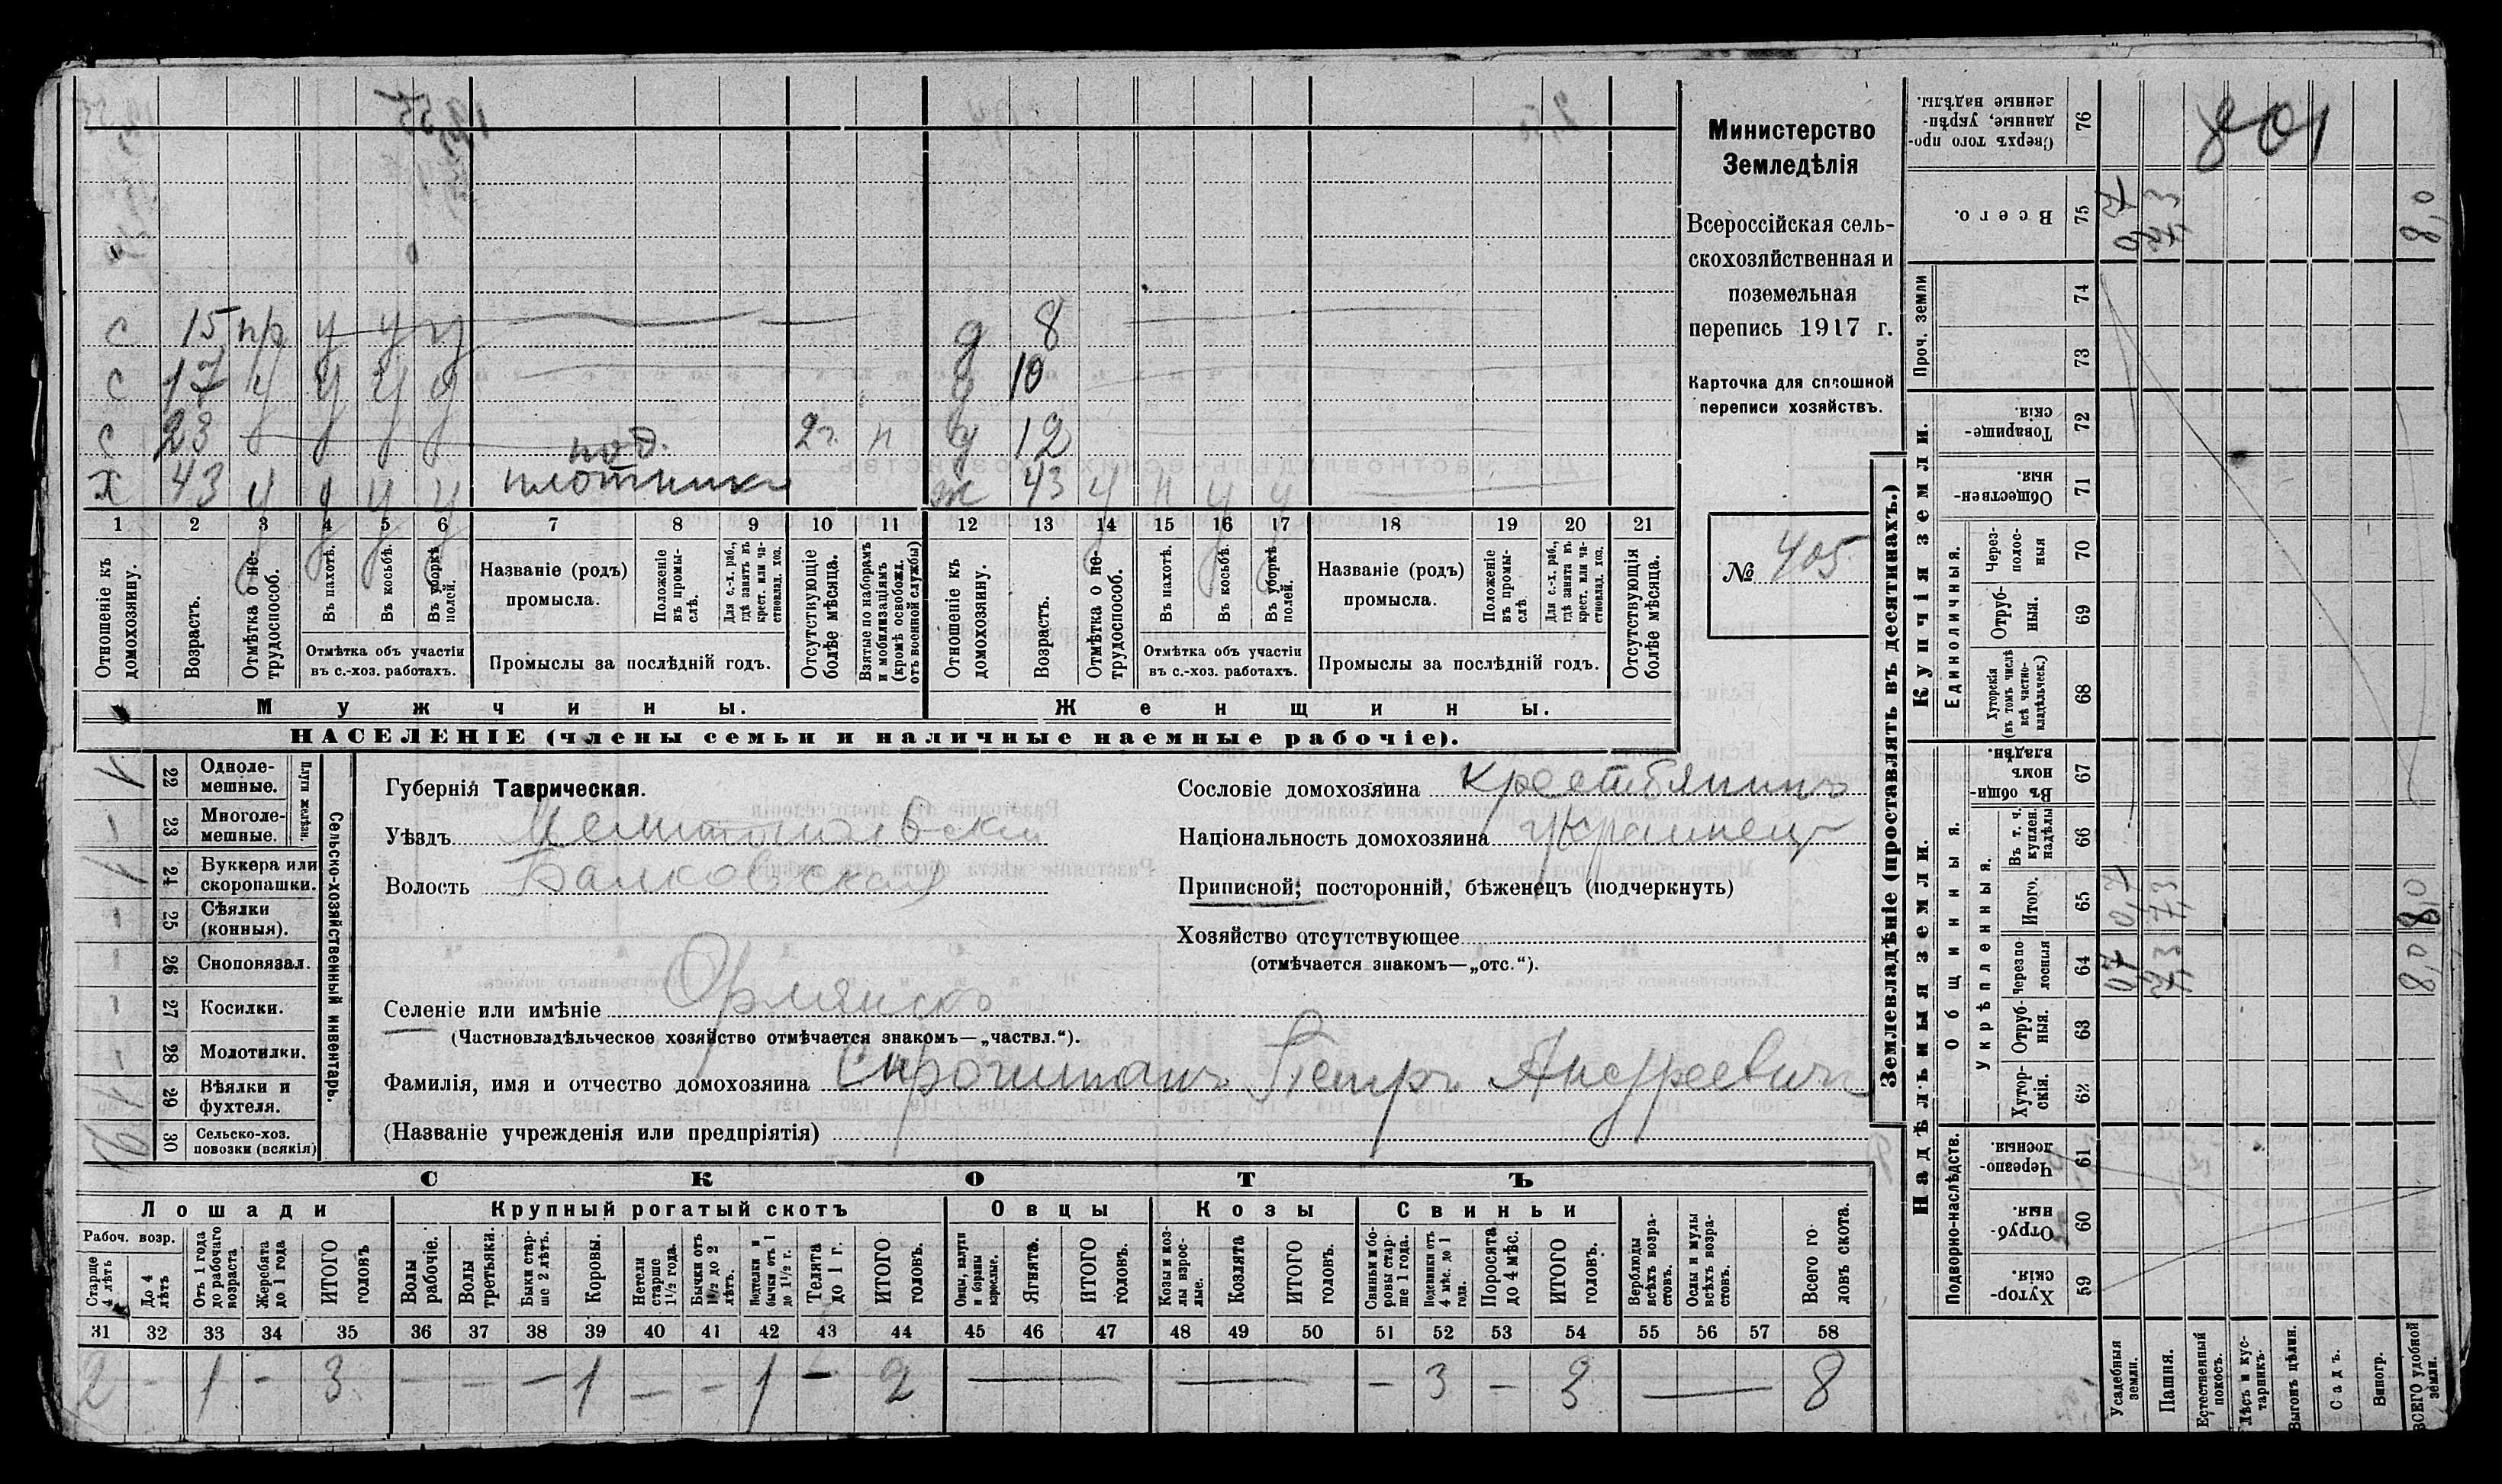 801
Министерство
Земледѣлія
Всероссійская сель-
скохозяйственная и
поземельная
перепись 1917 г.
Карточка для сплошной
переписи хозяйствъ.
№ 405
с 15 пр у у у д 8
с 17 у у у у д 10
с 23 2 г. п д 12
под.
х 43 у у у у плотникъ ж 43 у п у у
1 2 3 4 5 6 7 8 9 10 11 12 13 14 15 16 17 18 19 20 21
Отношеніе къ домохозяину.
Возрастъ.
Отмѣтка о не-трудоспособ.
Въ пахотѣ.
Въ косьбѣ.
Въ уборкѣ полей.
Отмѣтка объ участіи
въ с.-хоз. работахъ.
Названіе (родъ)
промысла.
Положеніе въ промы-слѣ.
Для с.-х. раб., гдѣ занятъ въ крест. или ча-стновлад. хоз.
Промыслы за послѣдній годъ.
Отсутствующіе болѣе мѣсяца.
Взятые по наборамъ и мобилизаціямъ (кромѣ освобожд. отъ военной службы)
Отношеніе къ домохозяину.
Возрастъ.
Отмѣтка о не-трудоспособ.
Въ пахотѣ.
Въ косьбѣ.
Въ уборкѣ полей.
Отмѣтка объ участіи
въ с.-хоз. работахъ.
Названіе (родъ)
промысла.
Положеніе въ промы-слѣ
Для с.-х. раб., гдѣ занята въ крест. или ча-стновлад. хоз.
Промыслы за послѣдній годъ.
Отсутствующія болѣе мѣсяца.
Мужчины. Женщины.
НАСЕЛЕНІЕ (члены семьи и наличные наемные рабочіе).
Сельско-хозяйственный инвентарь.
Плуги желѣзн.
22 Одноле-мешные. 1
23 Многоле-мешные.
24 Буккера или скоропашки. 1
25 Сѣялки (конныя).
26 Сноповязал.
27 Косилки.
28 Молотилки.
29 Вѣялки и фухтеля. 1
30 Сельско-хоз. повозки (всякія)
Губернія Таврическая.
Уѣздъ Мелитопольскій
Волость Балковская
Сословіе домохозяина крестьянинъ
Національность домохозяина украинецъ
Приписной; посторонній, бѣженецъ (подчеркнуть)
Хозяйство отсутствующее
(отмѣчается знакомъ—„отс.“).
Селеніе или имѣніе Орлянскъ
(Частновладѣльческое хозяйство отмѣчается знакомъ—„частвл.“).
Фамилія, имя и отчество домохозяина Петръ Андреевичъ
(Названіе учрежденія или предпріятія)
СКОТЪ
Лошади Крупный рогатый скотъ Овцы Козы Свиньи
Рабоч. возр.
Старше 4 лѣтъ
До 4 лѣтъ
Отъ 1 года до рабочаго возраста
Жеребята до 1 года
ИТОГО головъ
Волы рабочіе.
Волы третьяки.
Быки стар-ше 2 лѣтъ.
Коровы.
Нетели старше 1½ года.
Бычки отъ 1½ до 2 лѣтъ.
Подтелки и бычки отъ 1 до 1½ г.
Телята до 1 г.
ИТОГО головъ.
Овцы, валухи и бараны взрослые.
Ягнята.
ИТОГО головъ.
Козы и коз-лы взрос-лые.
Козлята
ИТОГО головъ.
Свиньи и бо-ровы стар-ше 1 года.
Подсвинки отъ 4 мѣс. до 1 года.
Поросята до 4 мѣс.
ИТОГО головъ.
Верблюды всѣхъ возра-стовъ.
Ослы и мулы всѣхъ возра-стовъ.
Всего го-ловъ скота.
31 32 33 34 35 36 37 38 39 40 41 42 43 44 45 46 47 48 49 50 51 52 53 54 55 56 57 58
2 - 1 - 3 - - - 1 - - 1 - 2 — — - 3 - 3 — 8
Землевладѣніе (проставлять въ десятинахъ.)
Надѣльныя земли. Купчія земли.
Подворно-наслѣдств.
Общинныя.
Укрѣпленныя.
Единоличныя.
Проч. земли
59 Хутор-скія.
60 Отруб-ныя.
61 Черезпо-лосныя.
62 Хутор-скія.
63 Отруб-ныя.
64 Черезпо-лосныя 0,7 7,3 8,0
65 Итого. 0,7 7,3 8,0
66 Въ т. ч. куплен. надѣлы
67 Въ общи-номъ владѣн.
68 Хуторскія (въ томъ числѣ всѣ частно-владѣльческ.)
69 Отруб-ныя.
70 Через-полос-ныя
71 Обществен-ныя.
72 Товарище-скія.
73
74
75 Всего. 0,7 7,3 8,0
76 Сверхъ того про-данные, укрѣп-ленные надѣлы.
Усадебныя земли.
Пашня.
Естественный покосъ.
Лѣсъ и кус-тарникъ.
Выгонъ цѣлин.
Садъ.
Виногр.
ВСЕГО удобной земли.